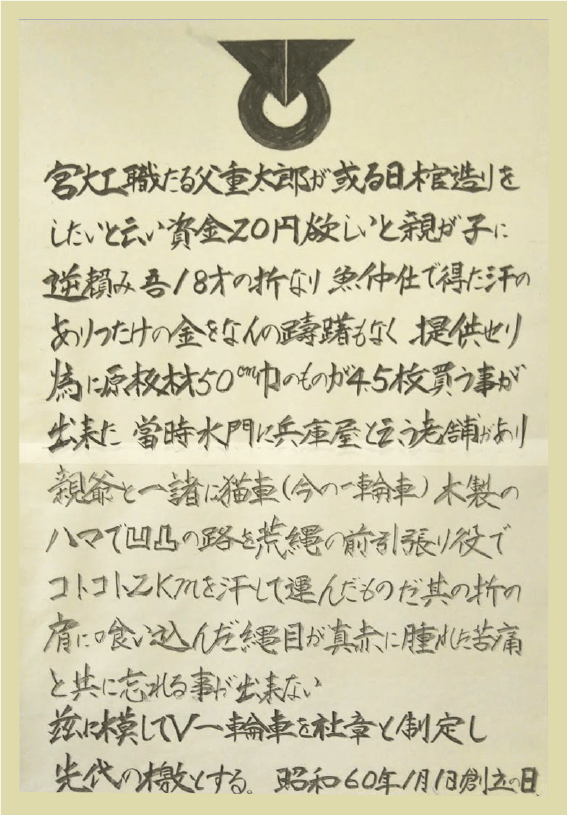 宮大工職たる父重太郎が或る日棺造りを
したいと云い資金20円欲しいと親が子に
逆頼み吾18才の折なり魚仲仕で得た汗の
ありったけの金をなんの躊躇もなく提供せり
為に原板材50cm巾のものが45枚買う事が
出来た 當時水門に兵庫屋と云う老舗があり
親爺と一諸に猫車(今の一輪車)木製の
ハマで凹凸の路を荒縄の前引張り役で
コトコト2Kmを汗して運んだものだ其の折の
肩に喰い込んだ縄目が真赤に腫れた苦痛
と共に忘れる事が出来ない
玆に模してV一輪車を社章と制定し
先代の檄とする。 昭和60年1月1日創立の日